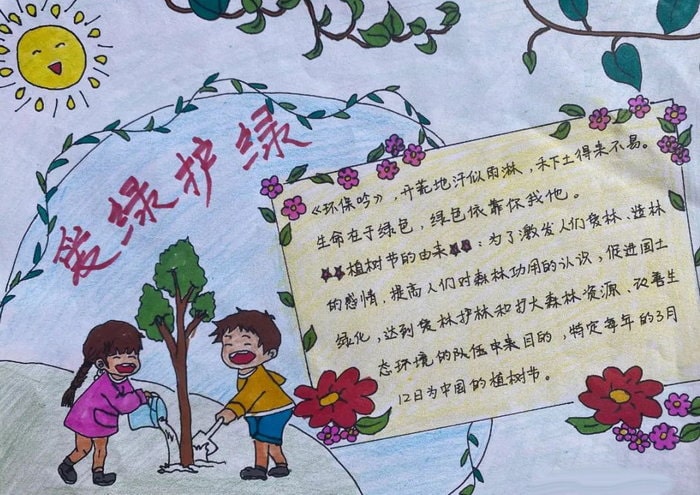 爱绿护绿
《环保吟》，开荒地汗似雨淋，禾下土得来不易。
生命在于绿色，绿色依靠你我他。
植树节的由来：为了激发人们爱林、造林
的感情，提高人们对森林功用的认识，促进国土
绿化，达到爱林护林和扩大森林资源、改善生
态环境的队伍中来目的，特定每年的3月
12日为中国的植树节。